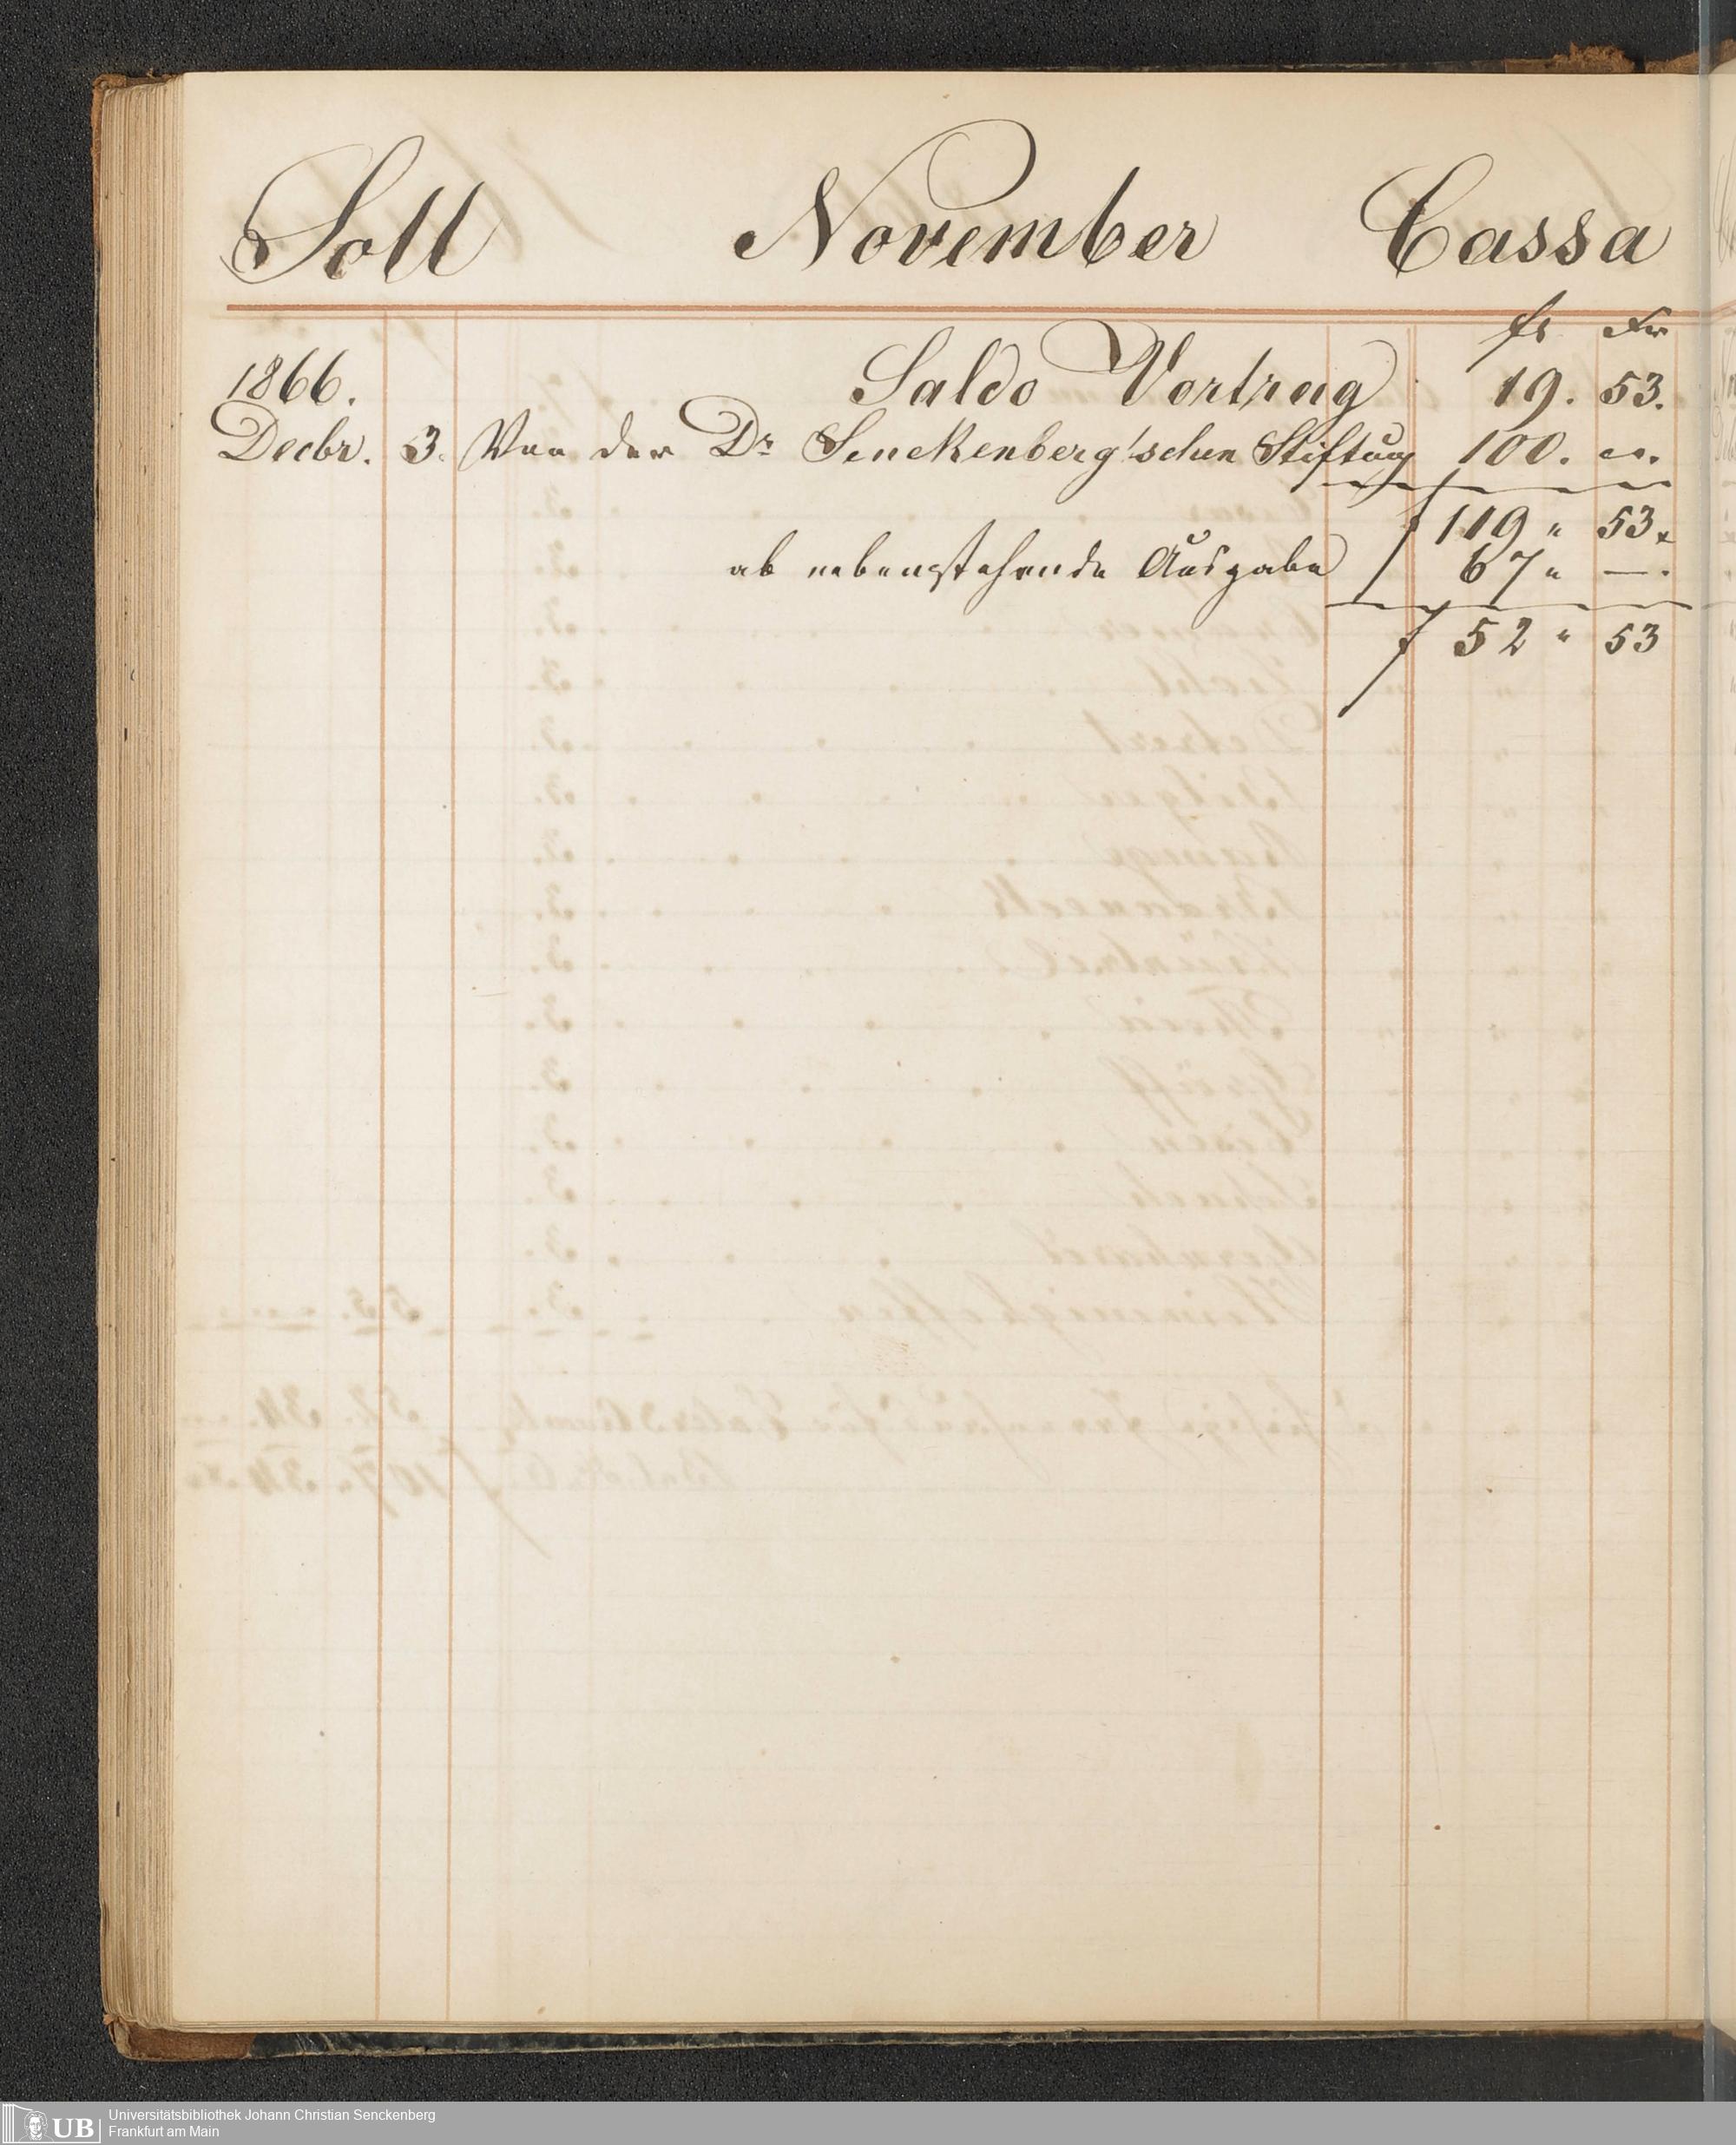 Soll November Cassa
fl Kr
1866. Saldo Vortrag 19. 53.
Decbr. 3. Von der Dr Senckenberg'schen Stiftung 100. „.
f 119 „ 53.
ab nebenstehende Ausgabe f 67 „ —.
f 52 „ 53
UB Universitätsbibliothek Johann Christian Senckenberg
Frankfurt am Main